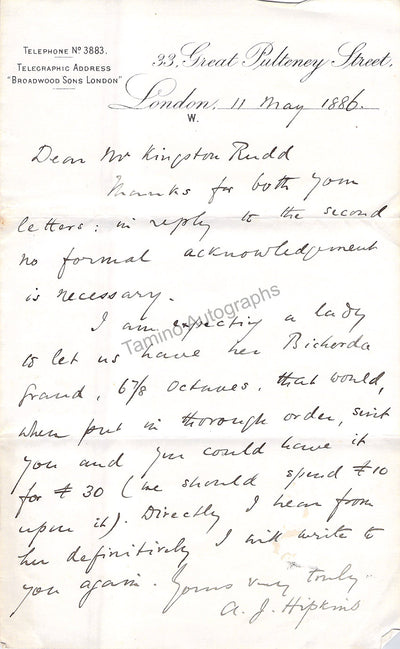 TELEPHONE Nº 3883.
TELEGRAPHIC ADDRESS
"BROADWOOD SONS LONDON"
33, Great Pulteney Street,
London, 11 May 1886.
W.
Dear Mr Kingston Rudd
Thanks for both your
letters: in reply to the second
no formal acknowledgement
is necessary.
I am expecting a lady
to let us have her Bichorda
Grand, 6 7/8 octaves, that would,
when put in thorough order, suit
you and you could have it
for £30 (we should spend £10
upon it). Directly I hear from
her definitively I will write to
you again. Yours very truly
A. J. Hipkins
Tamino Autographs